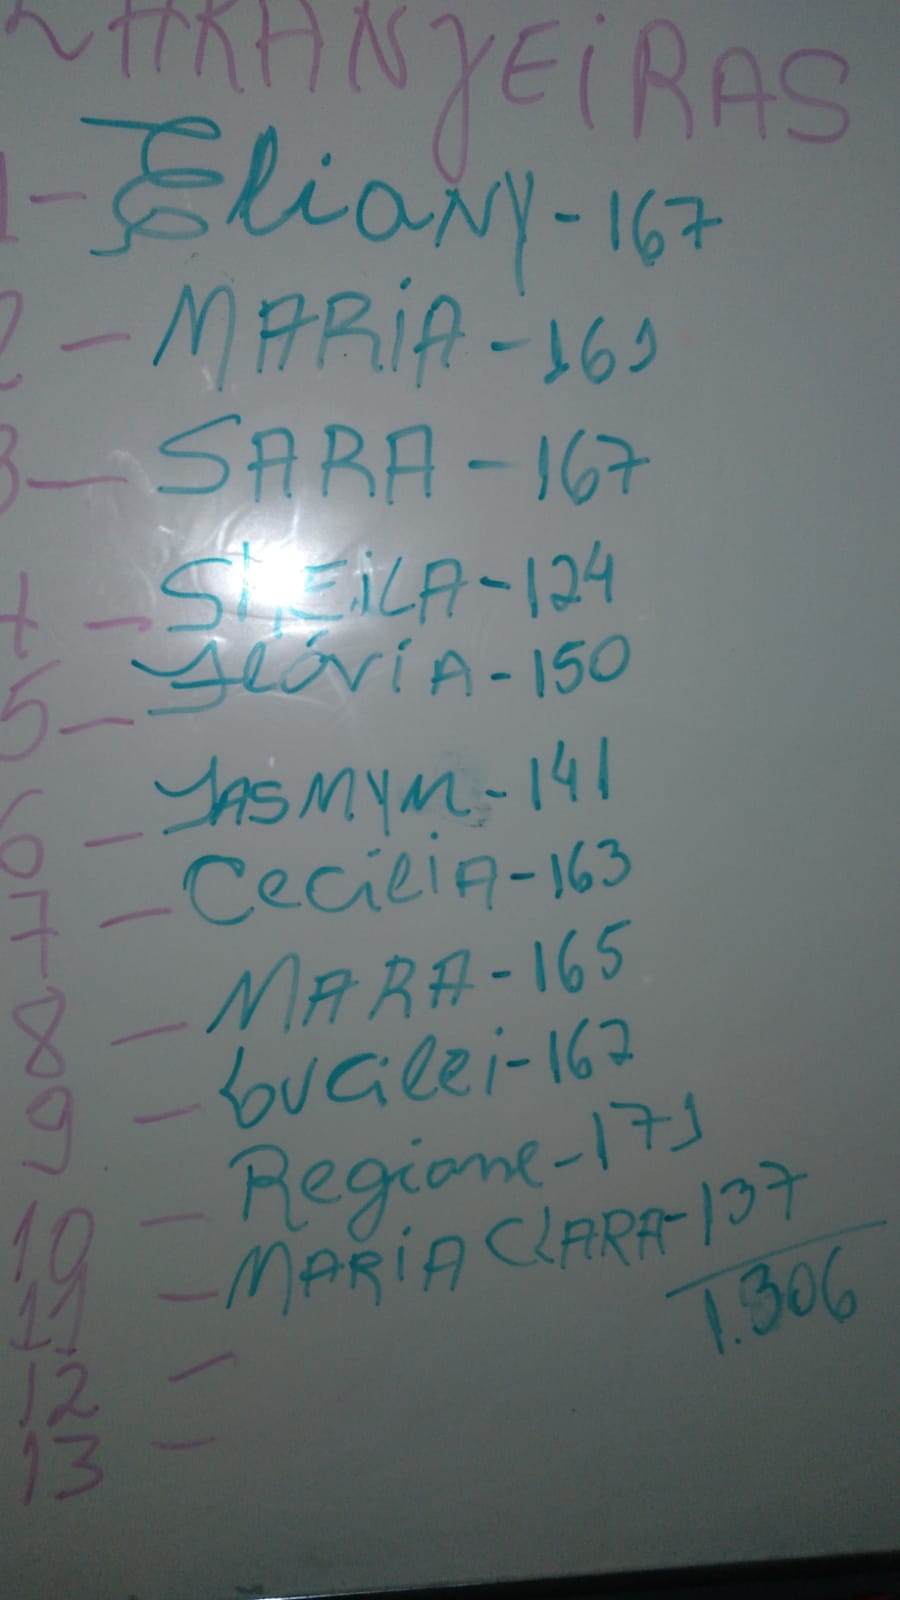 LARANJEIRAS
1 - Eliany - 167
2 - MARIA - 161
3 - SARA - 167
4 - SHEILA - 124
5 - Flávia - 150
6 - JASMYM - 141
7 - Cecilia - 163
8 - MARA - 165
9 - Lucilei - 167
10 - Regiane - 171
11 - MARIA CLARA - 137
1.306
12 -
13 -